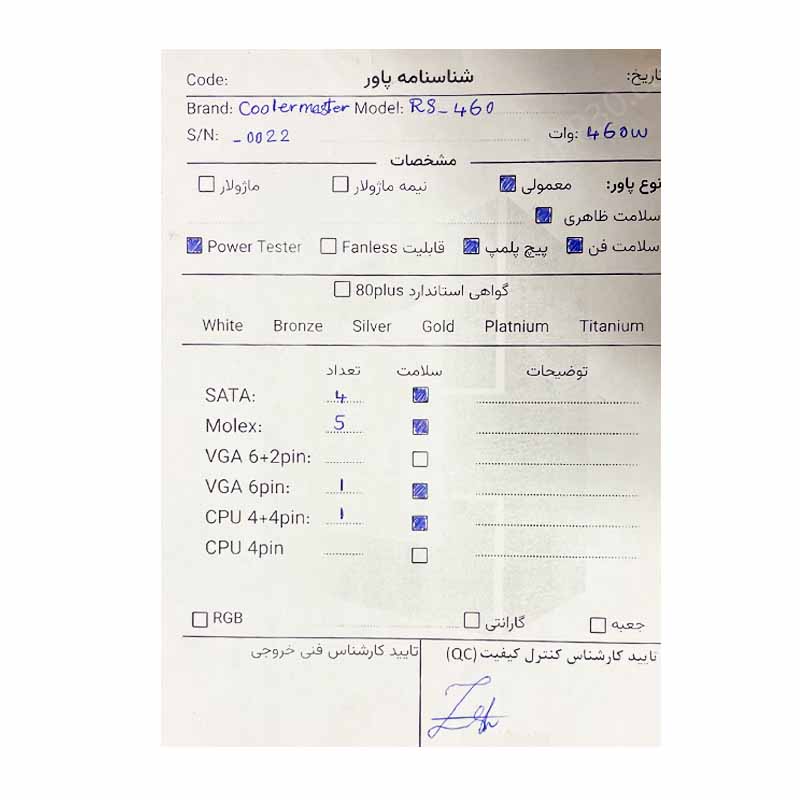 Code: شناسنامه پاور تاریخ:
Brand: Coolermaster Model: RS_460
S/N: _0022 وات: 460W
مشخصات
نوع پاور: معمولی نیمه ماژولار ماژولار
سلامت ظاهری
سلامت فن پیچ پلمپ قابلیت Fanless Power Tester
گواهی استاندارد 80plus
White Bronze Silver Gold Platnium Titanium
تعداد سلامت توضیحات
SATA: 4
Molex: 5
VGA 6+2pin:
VGA 6pin: 1
CPU 4+4pin: 1
CPU 4pin
RGB گارانتی جعبه
تایید کارشناس کنترل کیفیت (QC) تایید کارشناس فنی خروجی